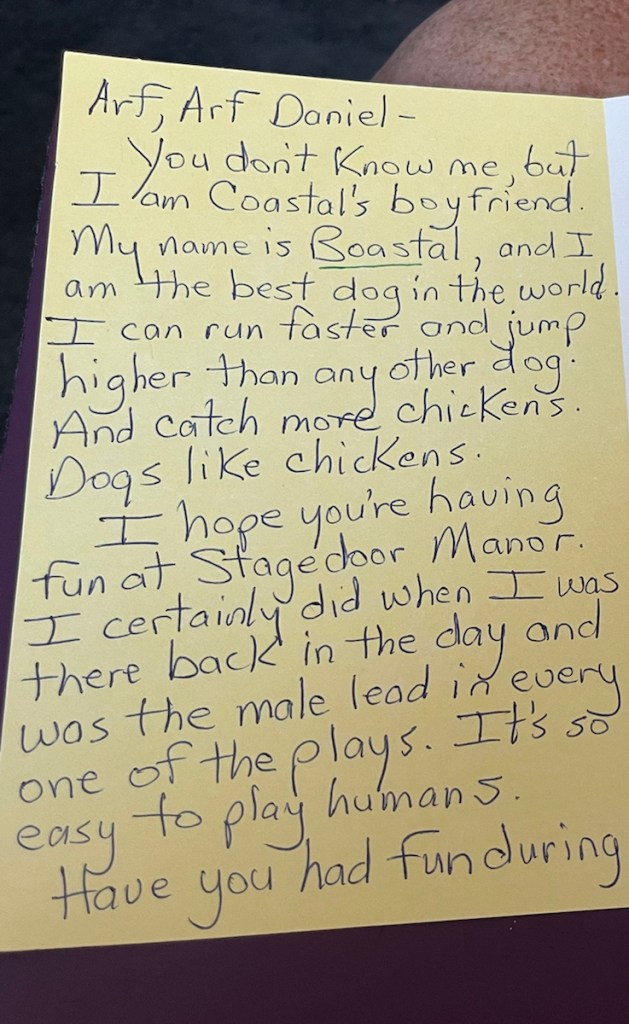 Arf, Arf Daniel-
You don't know me, but
I am Coastal's boyfriend.
My name is Boastal, and I
am the best dog in the world.
I can run faster and jump
higher than any other dog.
And catch more chickens.
Dogs like chickens.
I hope you're having
fun at Stagedoor Manor.
I certainly did when I was
there back in the day and
was the male lead in every
one of the plays. It's so
easy to play humans.
Have you had fun during